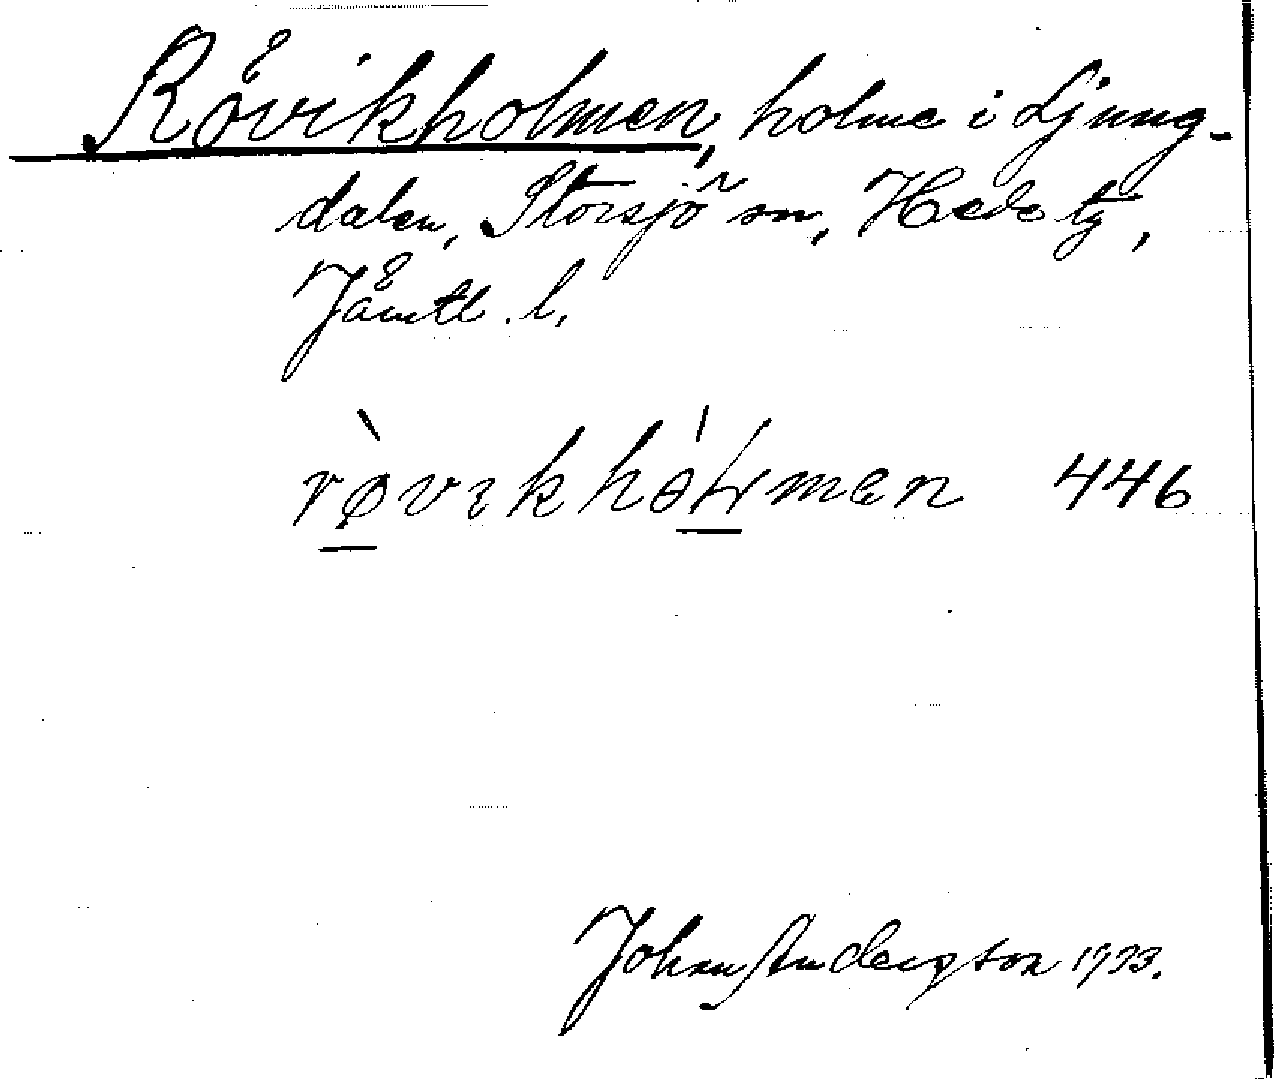 Råvikholmen, holme i Ljung-
dalen, Storsjö sn, Hede tg,
Jämtl. l.
rø̀vıkhólmen 446
Johan Anderson 1933.